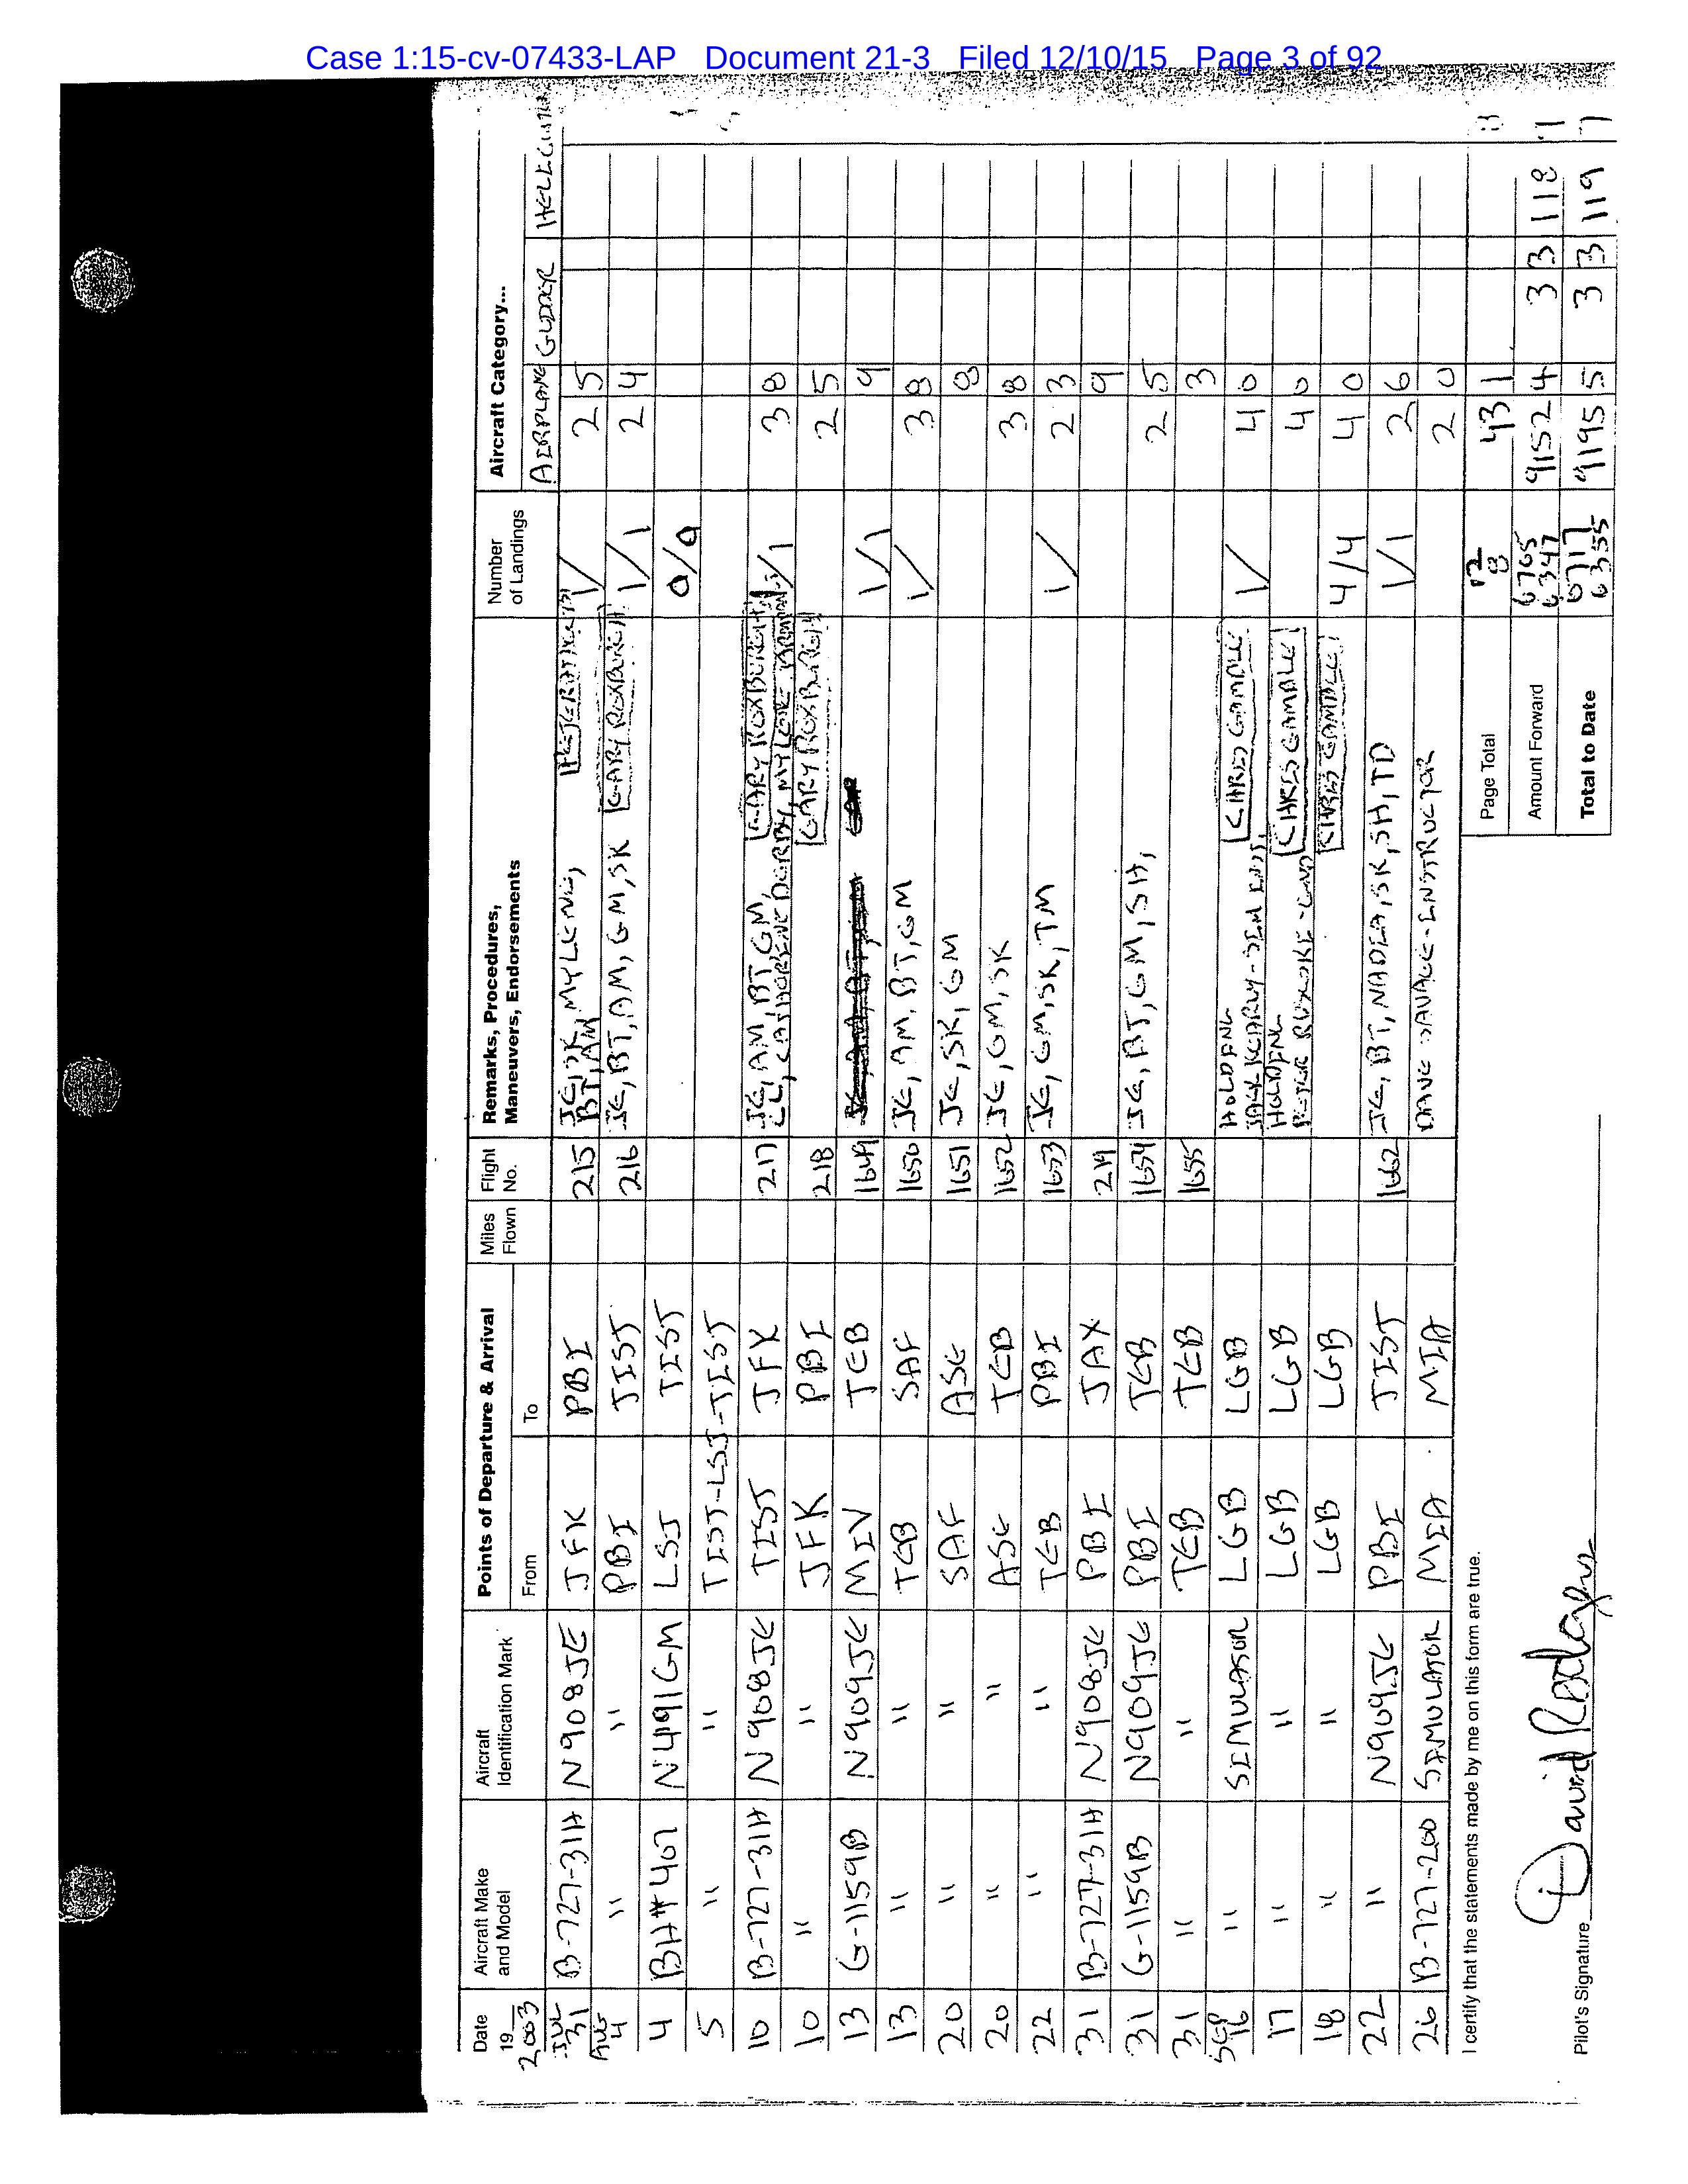 Case 1:15-cv-07433-LAP Document 21-3 Filed 12/10/15 Page 3 of 92
Date 19 2003 Aircraft Make and Model Aircraft Identification Mark Points of Departure & Arrival From To Miles Flown Flight No. Remarks, Procedures, Maneuvers, Endorsements Number of Landings Aircraft Category... AIRPLANE GLIDER
JUL 31 B-727-31H N908JE JFK PBI 215 JE, SK, MYLENE, BT, AM 1/ 2 5
AUG 4 " " PBI TIST 216 JE, BT, AM, GM, SK GARY ROXBURGH 1/1 2 4
4 BH#407 N491GM LSJ TIST 0/0
5 " " TIST-LSJ-TIST
10 B-727-31H N908JE TIST JFK 217 JE, AM, BT, GM, GARY ROXBURGH 1/1 3 8
10 " " JFK PBI 218 GARY ROXBURGH 2 5
13 G-1159B N909JE MIV TEB 1649 1/1 9
13 " " TEB SAF 1650 JE, AM, BT, GM 1/ 3 8
20 " " SAF ASE 1651 JE, SK, GM 8
20 " " ASE TEB 1652 JE, GM, SK 3 8
22 " " TEB PBI 1653 JE, GM, SK, TM 1/ 2 3
31 B-727-31H N908JE PBI JAX 219 9
31 G-1159B N909JE PBI TEB 1654 JE, BT, GM, SH, 2 5
31 " " TEB TEB 1655 3
SEP 16 " SIMULATOR LGB LGB HOLDING CHRIS GAMBLE 1/ 4 0
17 " " LGB LGB HOLDING CHRIS GAMBLE 4 0
18 " " LGB LGB CHRIS GAMBLE 4/4 4 0
22 " N909JE PBI TIST 1662 JE, BT, NADIA, SK, SH, TD 1/1 2 6
26 B-727-200 SIMULATOR MIA MIA DAVE SAVAGE-INSTRUCTOR 2 0
I certify that the statements made by me on this form are true.
Page Total 12 8 43 1
Amount Forward 6705 6347 9152 4 3 3 118 7
Total to Date 6717 6355 9195 5 3 3 119 7
Pilot's Signature David Rodgers